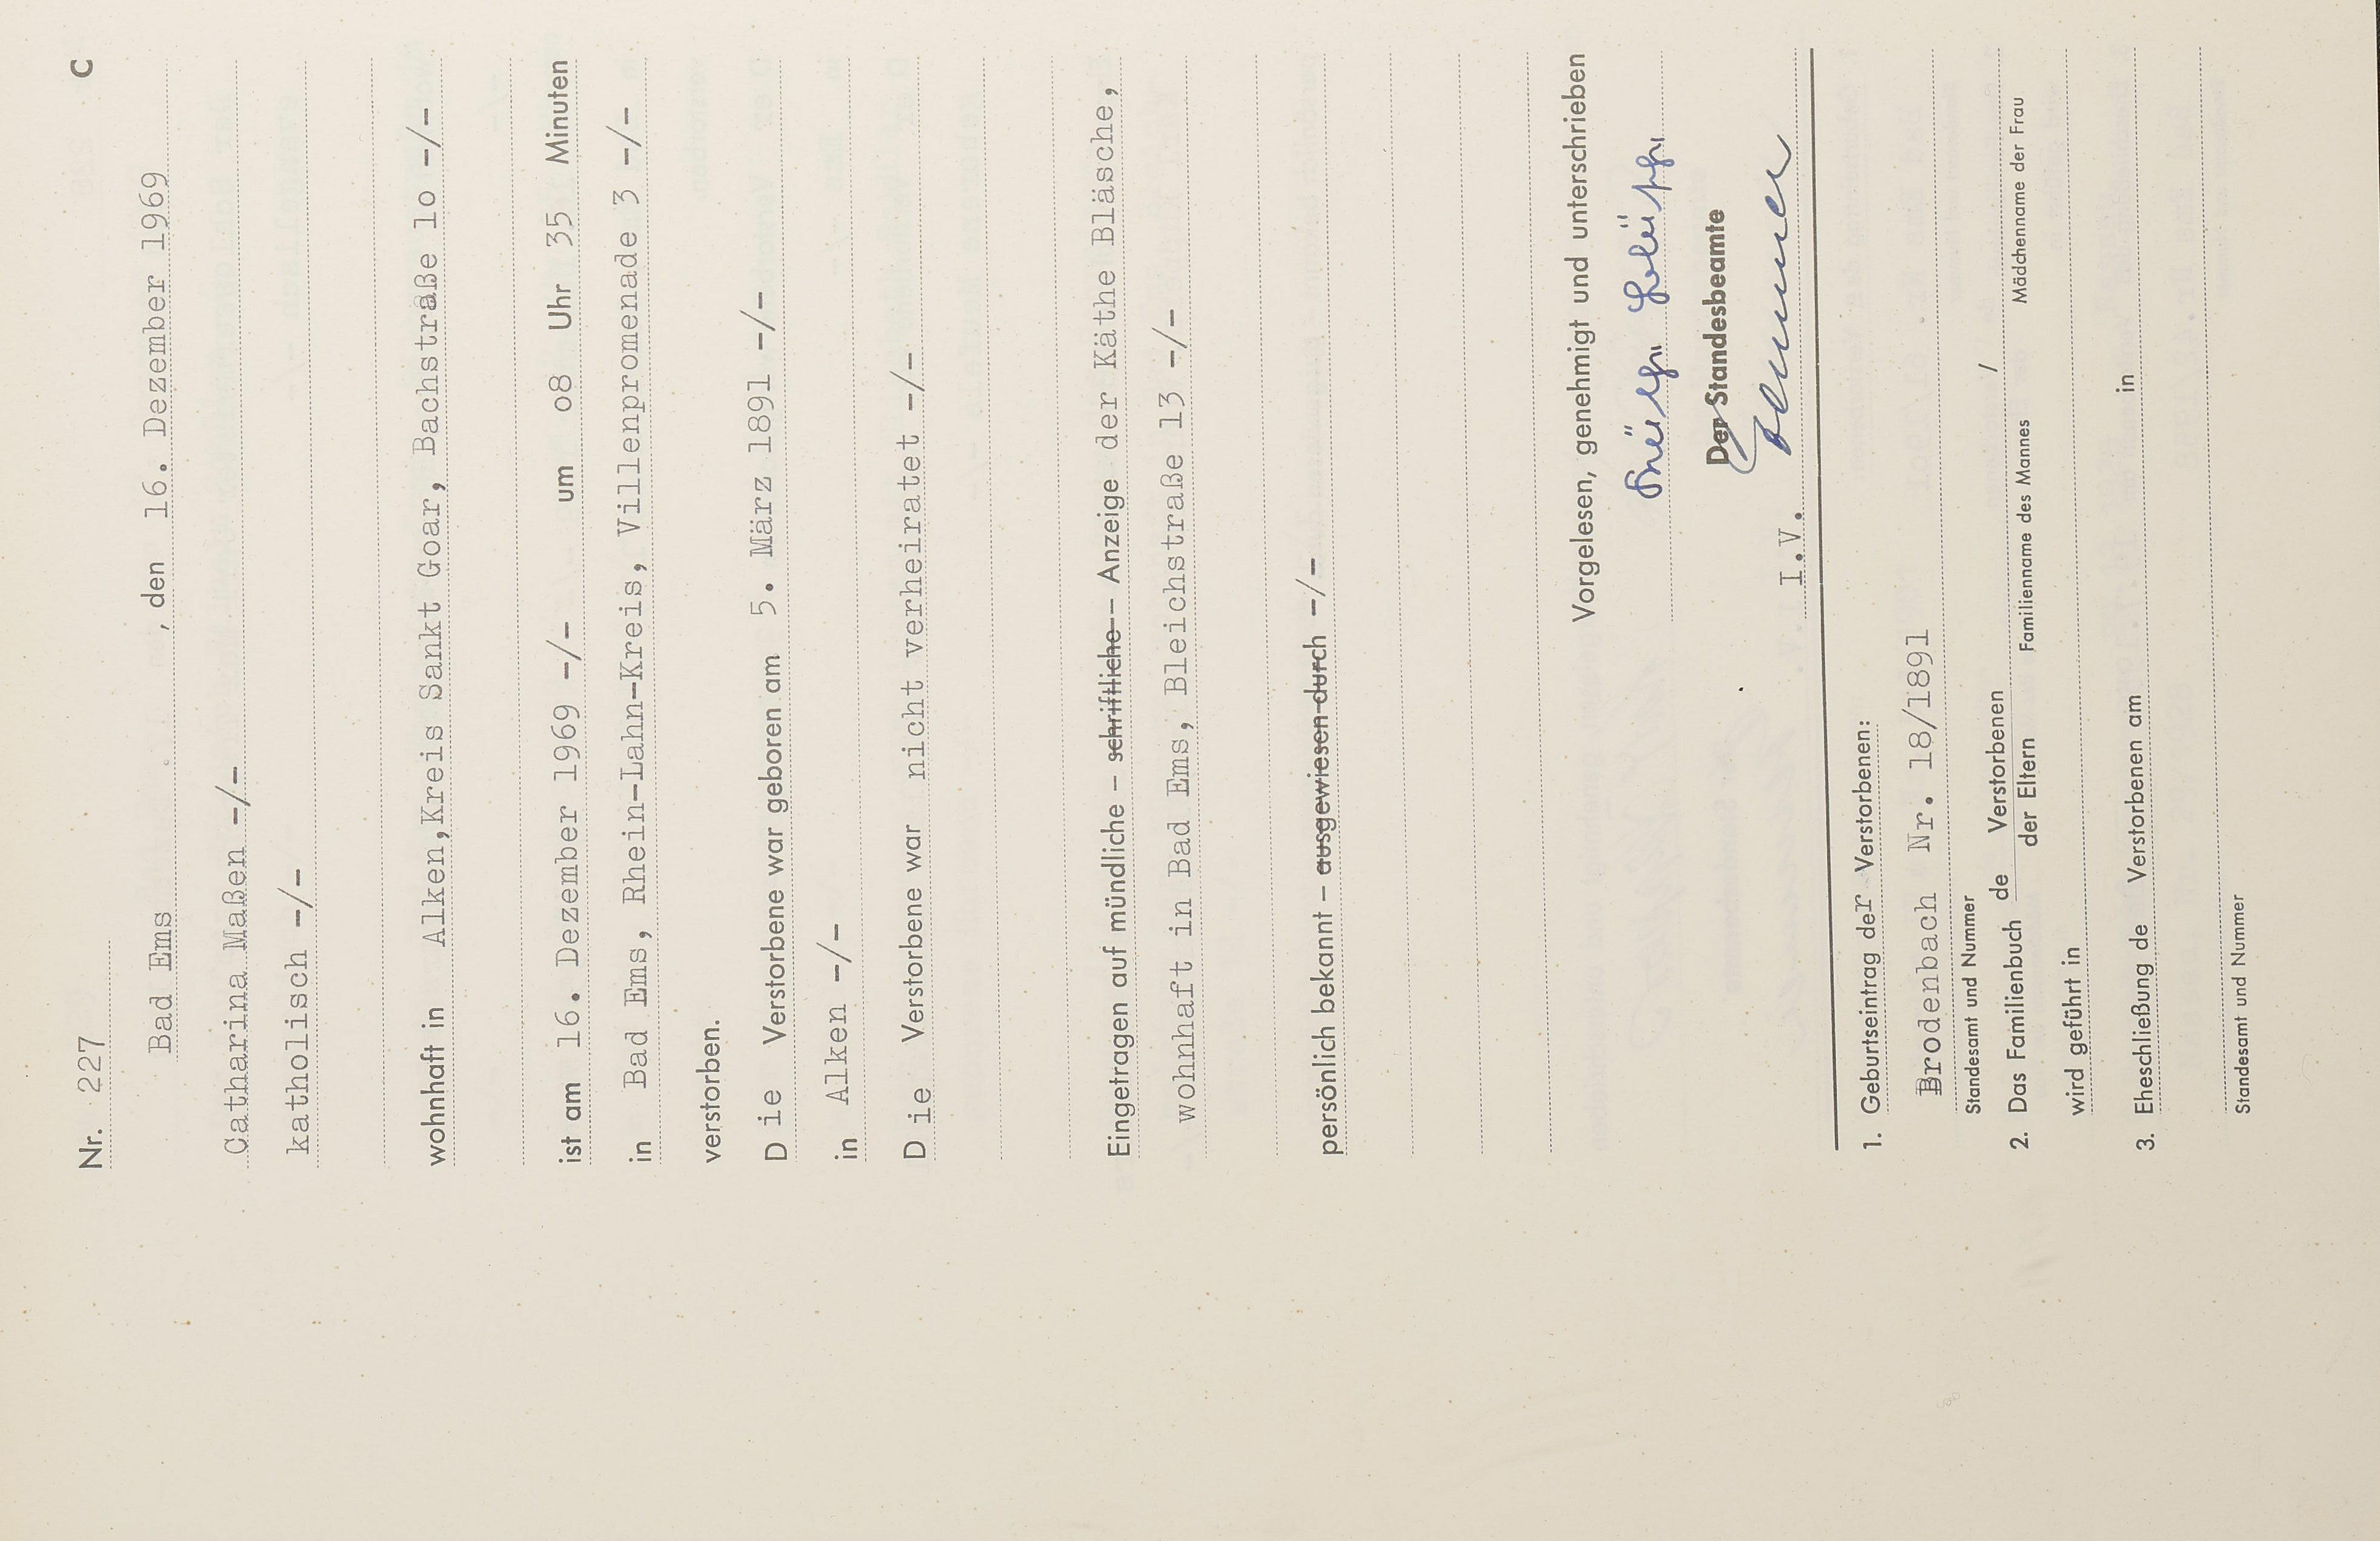 Nr. 227 C
Bad Ems , den 16. Dezember 1969
Catharina Maßen -/-
katholisch -/-
wohnhaft in Alken,Kreis Sankt Goar, Bachstraße lo -/-
ist am 16. Dezember 1969 -/- um o8 Uhr 35 Minuten
in Bad Ems, Rhein-Lahn-Kreis, Villenpromenade 3 -/-
verstorben.
D ie Verstorbene war geboren am 5. März 1891 -/-
in Alken -/-
D ie Verstorbene war nicht verheiratet -/-
Eingetragen auf mündliche – schriftliche – Anzeige der Käthe Bläsche,
wohnhaft in Bad Ems, Bleichstraße 13 -/-
persönlich bekannt – ausgewiesen durch -/-
Vorgelesen, genehmigt und unterschrieben
Der Standesbeamte
I.V.
1. Geburtseintrag der Verstorbenen:
Brodenbach Nr. 18/1891
Standesamt und Nummer
2. Das Familienbuch de Verstorbenen /
der Eltern Familienname des Mannes Mädchenname der Frau
wird geführt in
3. Eheschließung de Verstorbenen am in
Standesamt und Nummer